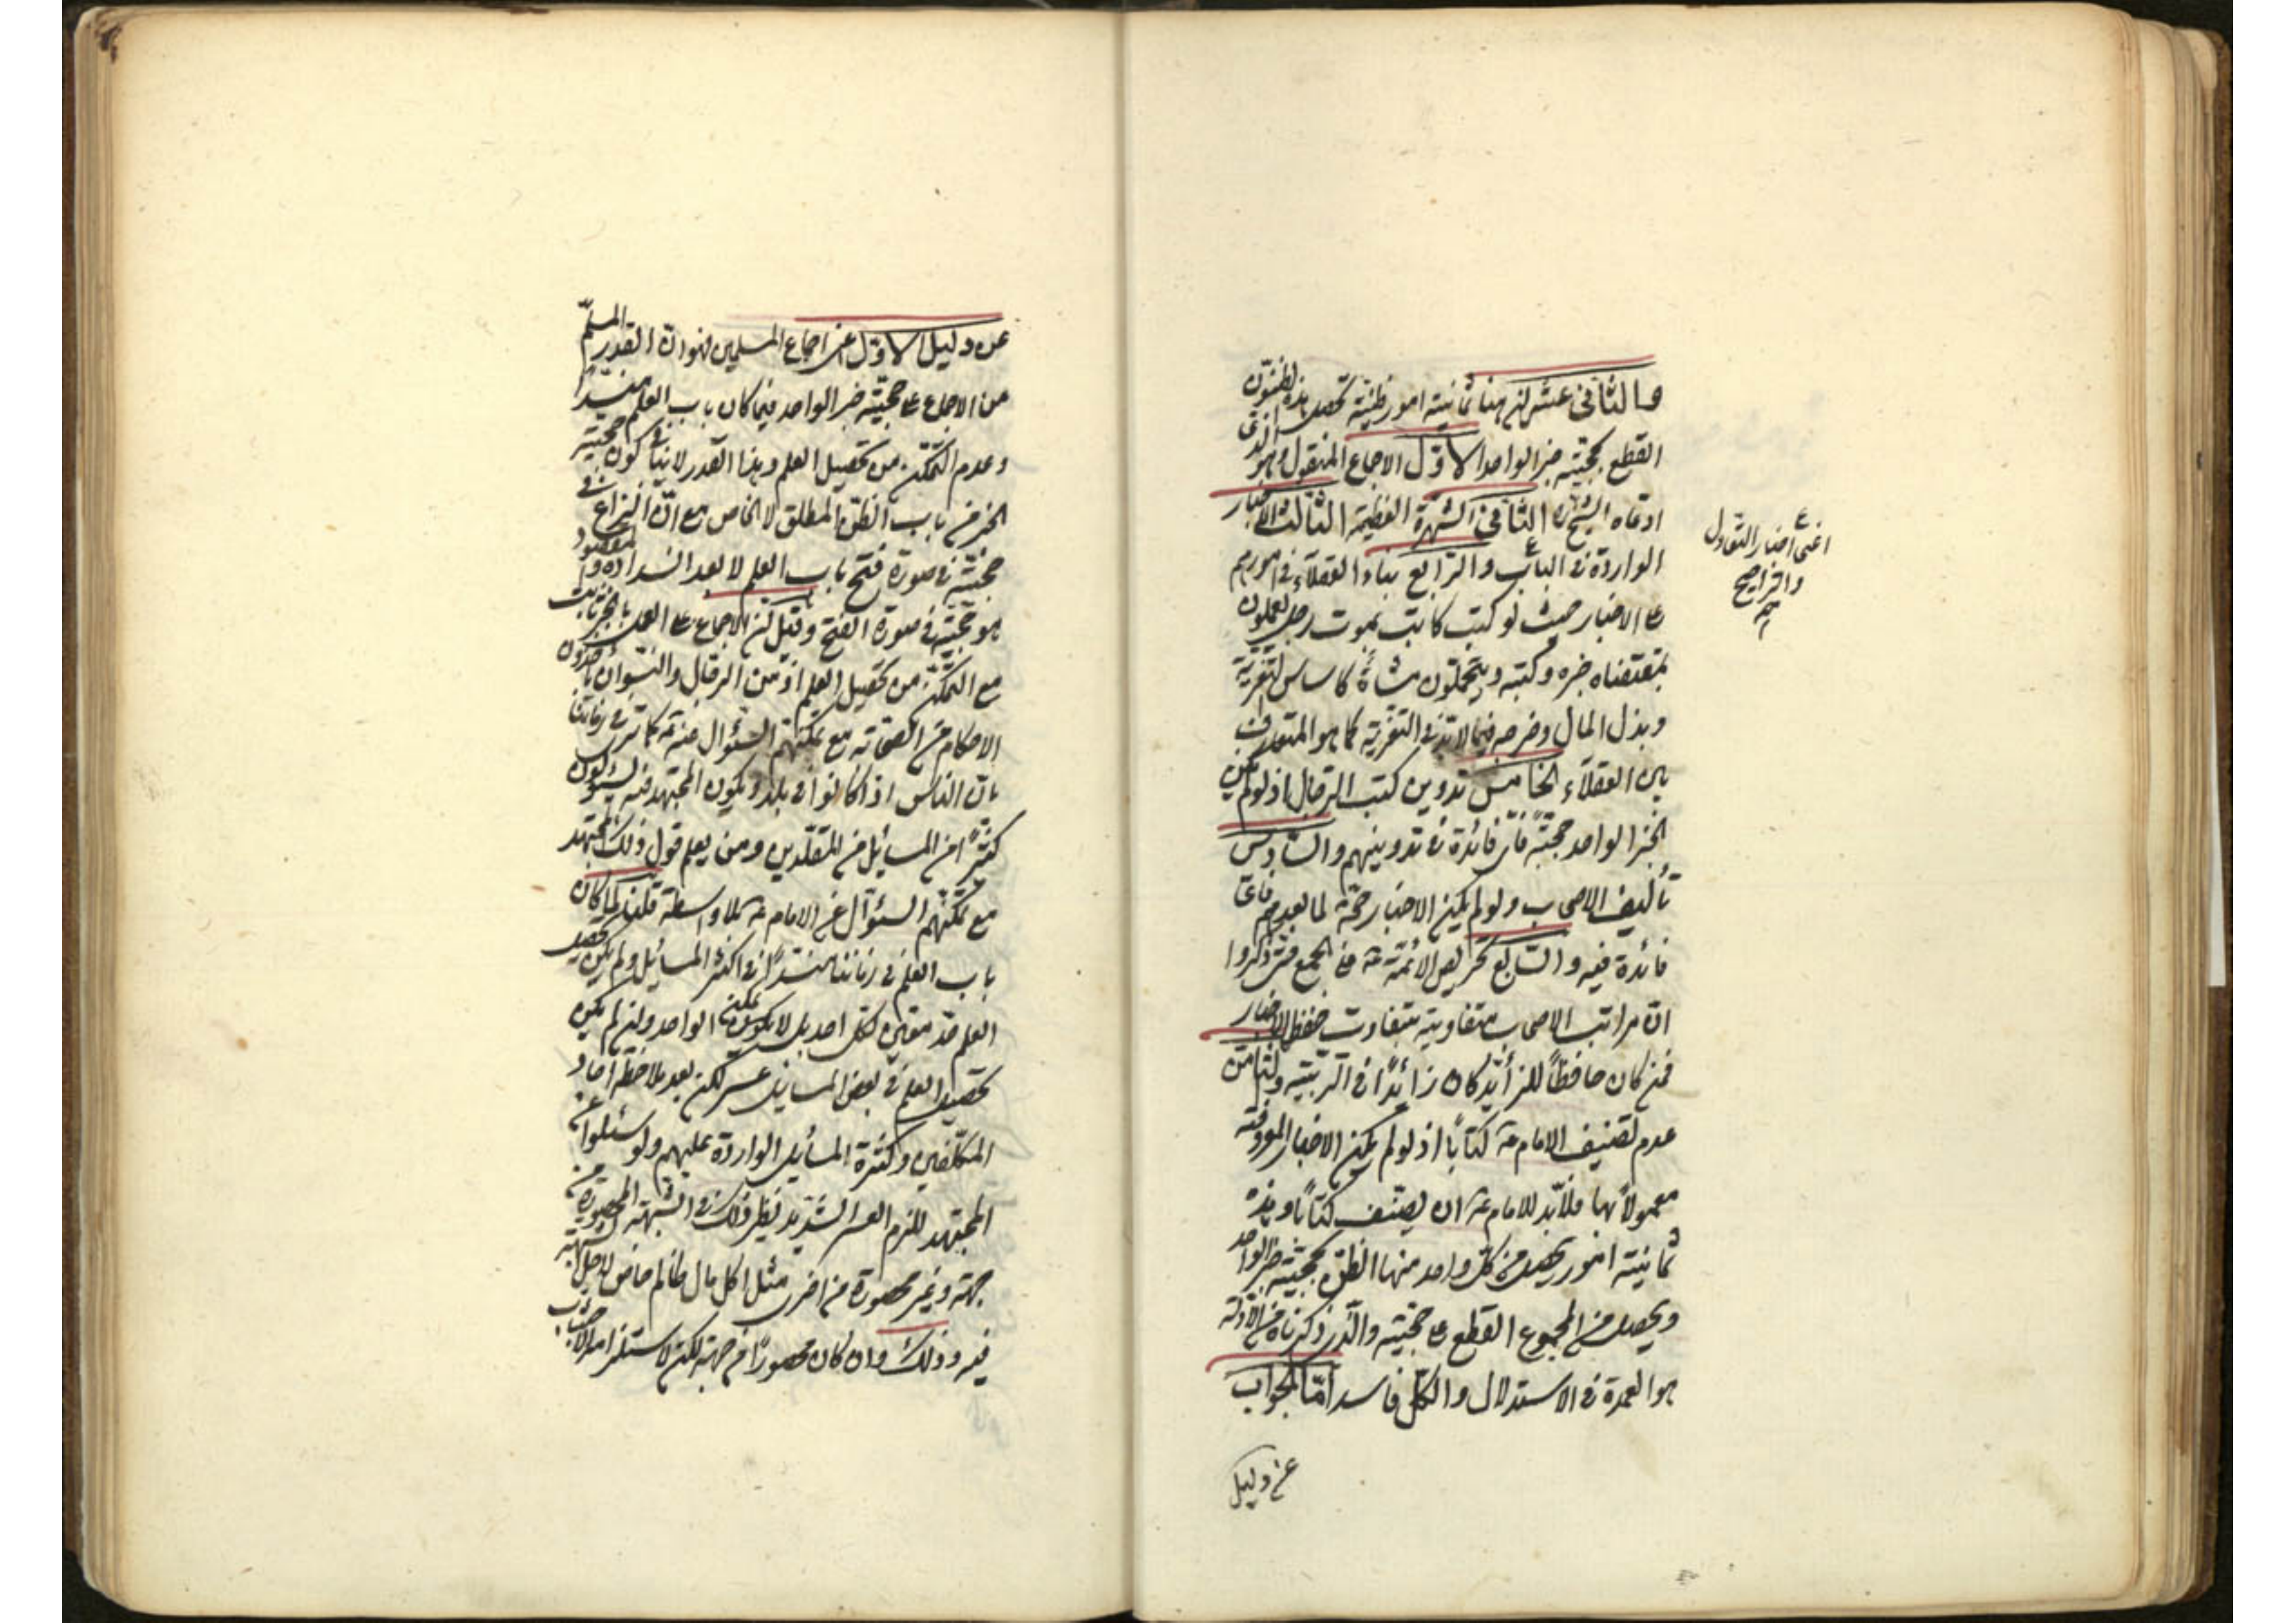 الثانى عشر ان هنا ثمانية امور ظنية تحصل بهذه الظنون
القطع بحجية خبر الواحد الاول الاجماع المنقول وهو الذى
ادعاه الشيخ ره الثانى الشهرة العظيمة الثالث الاخبار
الواردة فى الباب والرابع بناء العقلاء فى امورهم
على الاخبار حيث لو كتب كاتب بموت رجل يعملون
بمقتضاه خبره وكتبه ويتحملون كاساس التعزية
وبذل المال وخرجه فيما لابد فى التعزية كما هو المتعارف
بين العقلاء الخامس تدوين كتب الرجال اذ لو لم يكن
الخبر الواحد حجة فاى فائدة فى تدوينهم والسادس
تأليف الاصحاب ولو لم يكن الاخبار حجة لما بعدهم فاى
فائدة فيه والسابع تحريص الائمة ع على الجمع حتى ذكروا
ان مراتب الاصحاب متفاوتة بتفاوت حفظ الاخبار
فمن كان حافظاً للزائد كان زائداً فى الرتبة والثامن
عدم تصنيف الامام ع كتاباً اذ لو لم يكن الاخبار المروية
معمولاً بها فلابد للامام ع ان يصنف كتاباً وهذه
ثمانية امور يحصل من كل واحد منها الظن بحجية خبر الواحد
ويحصل من المجموع القطع على حجيته والذى ذكرناه من الادلة
هو العمدة فى الاستدلال والكل فاسد اما الجواب
عن دليل
اعنى اخبار التعادل
والتراجيح
عن دليل الاول اعنى اجماع المسلمين فهو ان القدر المسلم
من الاجماع على حجية خبر الواحد فيما كان باب العلم منسداً
وعدم التمكن من تحصيل العلم وهذا القدر لا ينافى كون حجية
الخبر من باب الظن المطلق لا الخاص مع ان النزاع فى
حجيته فى صورة فتح باب العلم لا بعد انسداده والمقصود
هو حجيته فى صورة الفتح وقيل ان الاجماع على العمل بالخبر ثابت
مع التمكن من تحصيل العلم اذ من الرجال والنسوان ياخذون
الاحكام من الصحابة مع تمكنهم السؤال عنه ع كما ترى فى زماننا
بان الناس اذا كانوا فى بلد ويكون المجتهد فيه يسئلون
كثيراً من المسائل من المقلدين ومن يعلم قول ذلك المجتهد
مع تمكنهم السؤال عن الامام ع بلا واسطة قلنا لما كان
باب العلم فى زماننا منسداً فى اكثر المسائل ولم يكن تحصيل
العلم لكل احد بل لا يكون يمكن الواحد وان لم يكن
تحصيل العلم فى بعض المسايل عسر لكن بعد ملاحظة احاد
المكلفين وكثرة المسايل الواردة عليهم ولو سئلوا عن
المجتهد للزم العسر الشديد نظير ذلك فى الشبهة المحصورة من
جهة وغير محصورة من اخرى مثل اكل مال ظالم خاص لاجل الشبهة
فيه وذلك وان كان محصوراً من جهة لكن لاستلزام الاجتناب